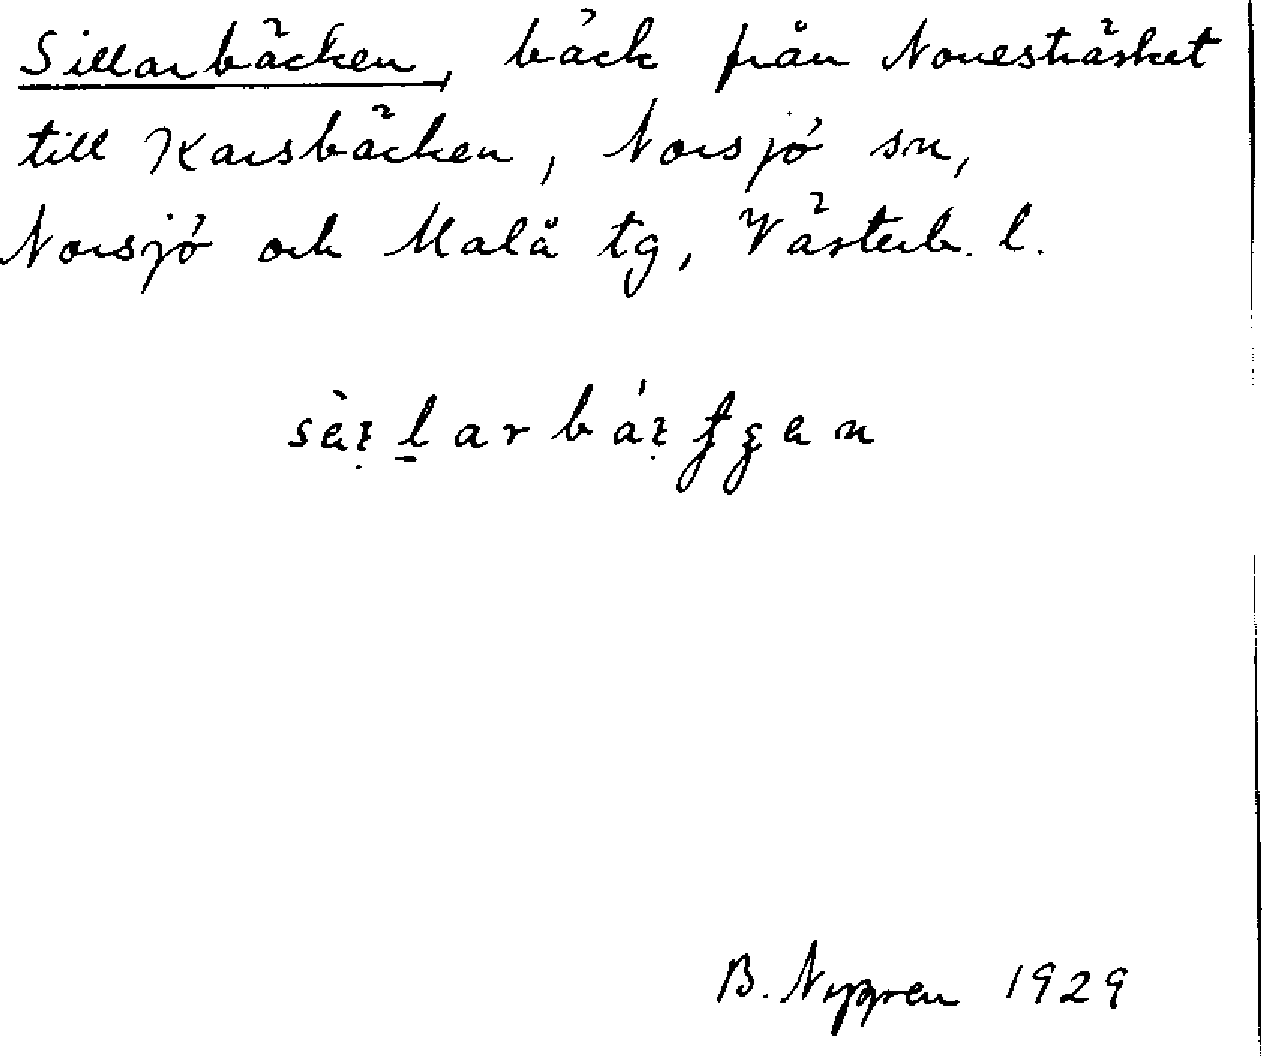 Sillarbäcken, bäck från Nonesträsket
till Karsbäcken, Norsjö sn,
Norsjö och Malå tg, Västerb. l.
B. Nygren 1929